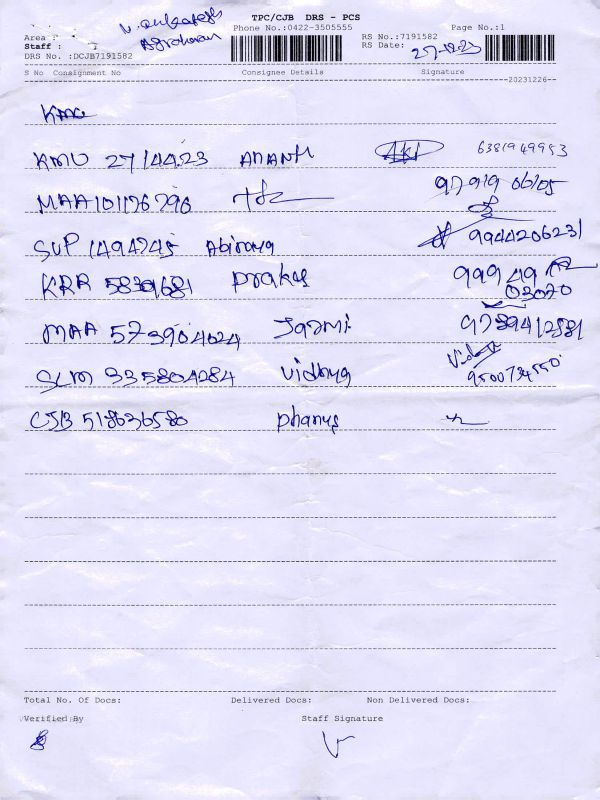 TPC/CJB DRS - PCS
Phone No.:0422-3505555
Page No.:1
Area :
RS No.:7191582
Staff :
RS Date: 27-12-23
DRS No. :DCJB7191582
S No Consignment No Consignee Details Signature
20231226
KMU 27144223 Ananth 6381949953
MAA101176790 97919 06105
SUP 1494745 Abinaya 9944206231
KRR 5839681 Prakas 99949 03070
MAA 573904024 9789412881
SLM 335804284 Vidhya Vidhya 9500734550
CJB 518636580 Phanys
Total No. Of Docs: Delivered Docs: Non Delivered Docs:
Verified By Staff Signature